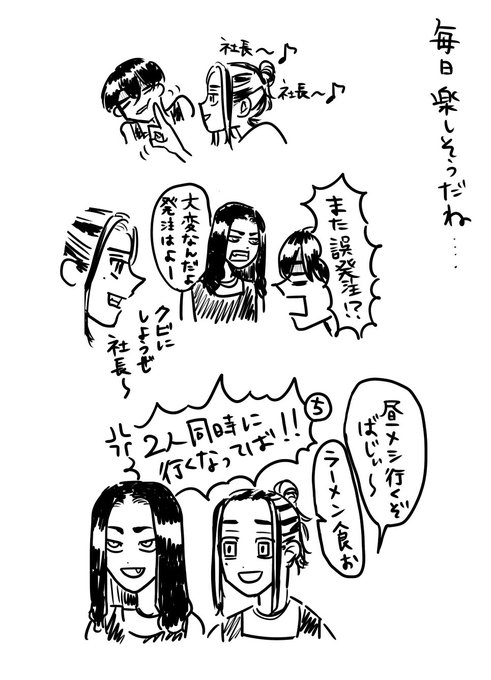 毎日楽しそうだね……
社長〜♪
社長〜♪
また誤発注!?
大変なんだよ
発注はよー
クビに
しようぜ
社長〜
昼メシ行くぞ
ばじぃ〜
ラーメン食お
ち
2人同時に
行くなってば!!